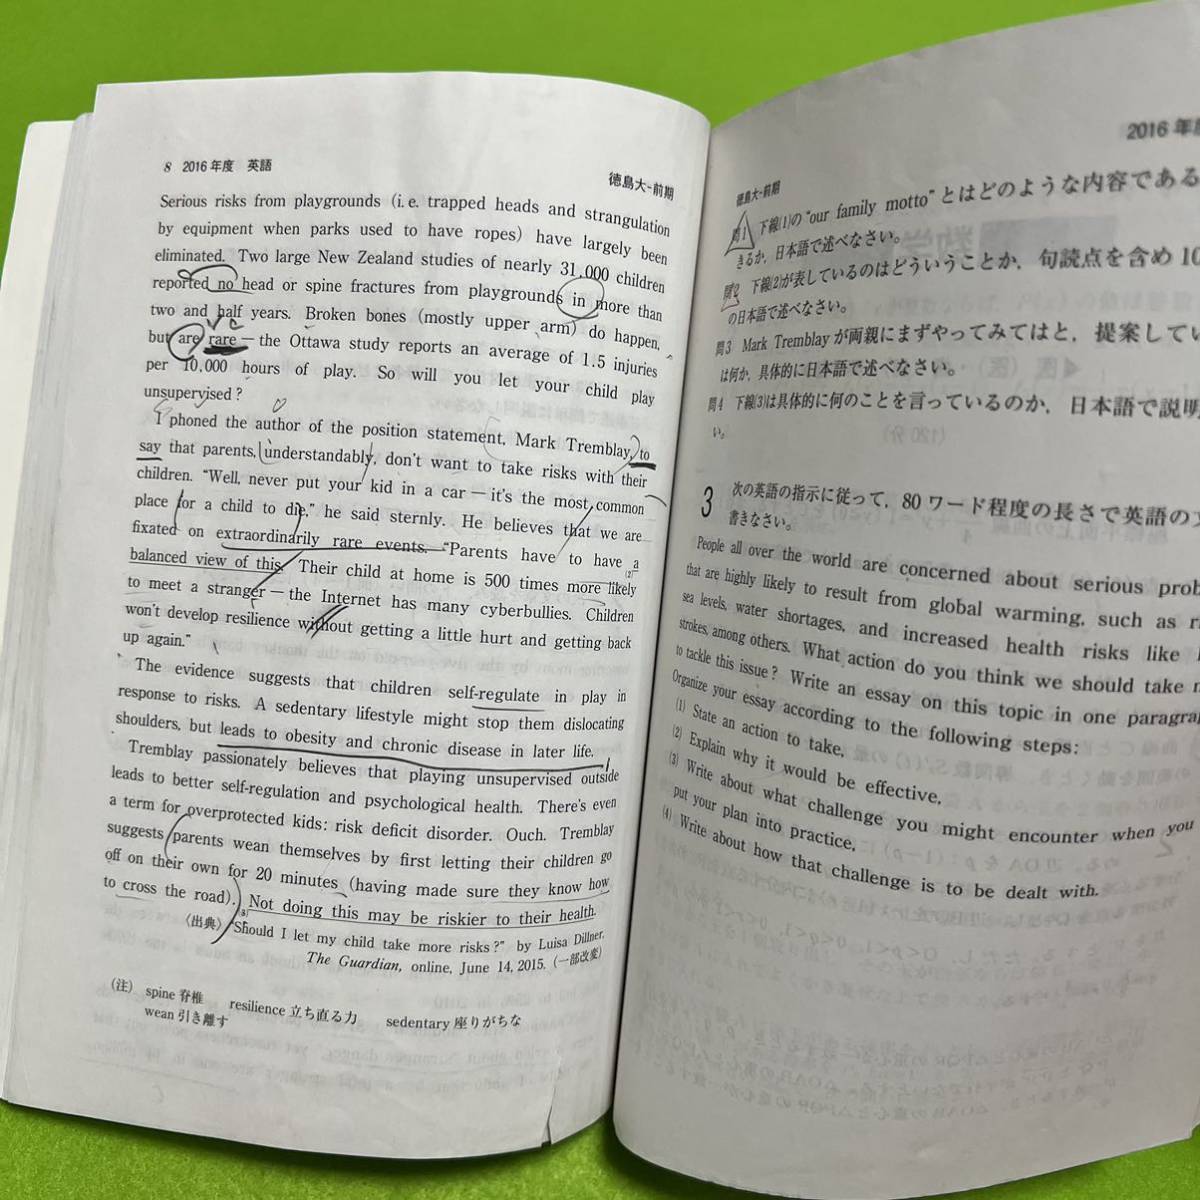 8 2016年度 英語
徳島大-前期
Serious risks from playgrounds (i.e. trapped heads and strangulation
by equipment when parks used to have ropes) have largely been
eliminated. Two large New Zealand studies of nearly 31,000 children
reported no head or spine fractures from playgrounds in more than
two and half years. Broken bones (mostly upper arm) do happen,
but are rare — the Ottawa study reports an average of 1.5 injuries
per 10,000 hours of play. So will you let your child play
unsupervised?
I phoned the author of the position statement, Mark Tremblay, to
say that parents, understandably, don't want to take risks with their
children. "Well, never put your kid in a car — it's the most common
place for a child to die," he said sternly. He believes that we are
fixated on extraordinarily rare events. "Parents have to have a
balanced view of this. Their child at home is 500 times more likely
(2)
to meet a stranger — the Internet has many cyberbullies. Children
won't develop resilience without getting a little hurt and getting back
up again."
The evidence suggests that children self-regulate in play in
response to risks. A sedentary lifestyle might stop them dislocating
shoulders, but leads to obesity and chronic disease in later life.
Tremblay passionately believes that playing unsupervised outside
leads to better self-regulation and psychological health. There's even
a term for overprotected kids: risk deficit disorder. Ouch. Tremblay
suggests parents wean themselves by first letting their children go
off on their own for 20 minutes (having made sure they know how
to cross the road). Not doing this may be riskier to their health.
(3)
〈出典〉 "Should I let my child take more risks?" by Luisa Dillner,
The Guardian, online, June 14, 2015. (一部改変)
(注) spine 脊椎 resilience 立ち直る力 sedentary 座りがちな
wean 引き離す
2016年度
徳島大-前期
問1 下線(1)の"our family motto"とはどのような内容である
きるか, 日本語で述べなさい。
問2 下線(2)が表しているのはどういうことか, 句読点を含め10
の日本語で述べなさい。
問3 Mark Tremblayが両親にまずやってみてはと, 提案してい
は何か, 具体的に日本語で述べなさい。
問4 下線(3)は具体的に何のことを言っているのか, 日本語で説明
い。
3 次の英語の指示に従って, 80ワード程度の長さで英語の文
書きなさい。
People all over the world are concerned about serious prob
that are highly likely to result from global warming, such as r
sea levels, water shortages, and increased health risks like
strokes, among others. What action do you think we should take
to tackle this issue? Write an essay on this topic in one paragra
Organize your essay according to the following steps:
(1) State an action to take,
(2) Explain why it would be effective,
(3) Write about what challenge you might encounter when you
put your plan into practice,
(4) Write about how that challenge is to be dealt with.